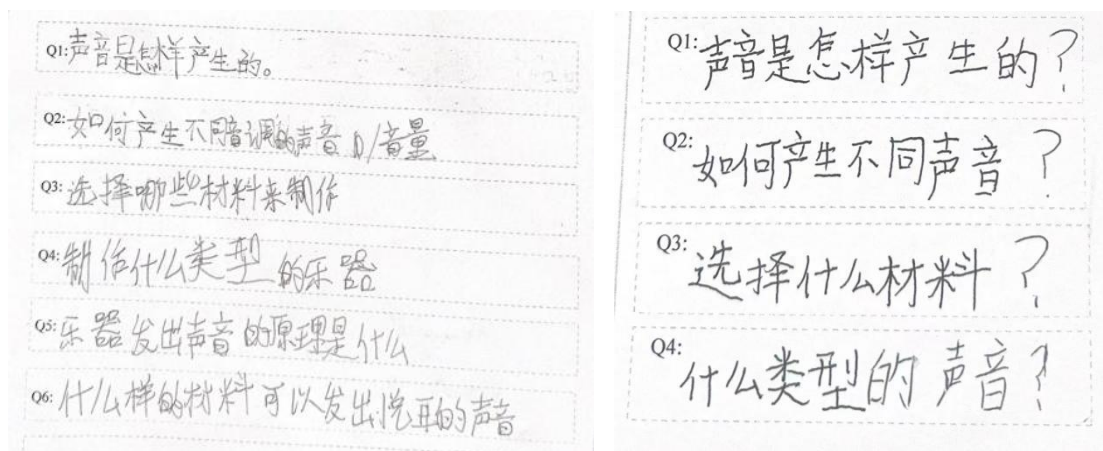 Q1:声音是怎样产生的。
Q2:如何产生不同音调的声音 /音量
Q3:选择哪些材料来制作
Q4:制作什么类型的乐器
Q5:乐器发出声音的原理是什么
Q6:什么样的材料可以发出悦耳的声音
Q1:声音是怎样产生的?
Q2:如何产生不同声音?
Q3:选择什么材料?
Q4:什么类型的声音?